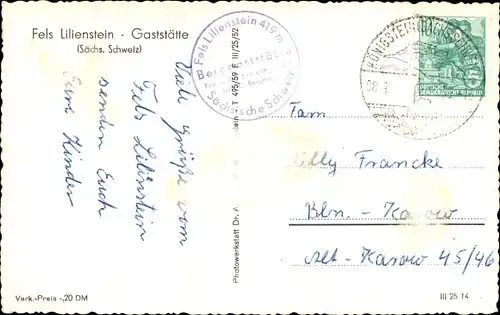 Fels Lilienstein · Gaststätte
(Sächs. Schweiz)
Viele Grüße vom
Fels Lilienstein
senden Euch
Eure Kinder
Verk.-Preis -,20 DM
Photowerkstätt Dr.
T 495/59 F III/25/52
Fels Lilienstein 419 m
Berggaststätte
Sächsische Schweiz
KÖNIGSTEIN (SÄCHS SCHWEIZ)
DEUTSCHE
DEMOKRATISCHE REPUBLIK
Fam.
Willy Francke
Bln. - Karow
Alt-Karow 45/46
III 25 14